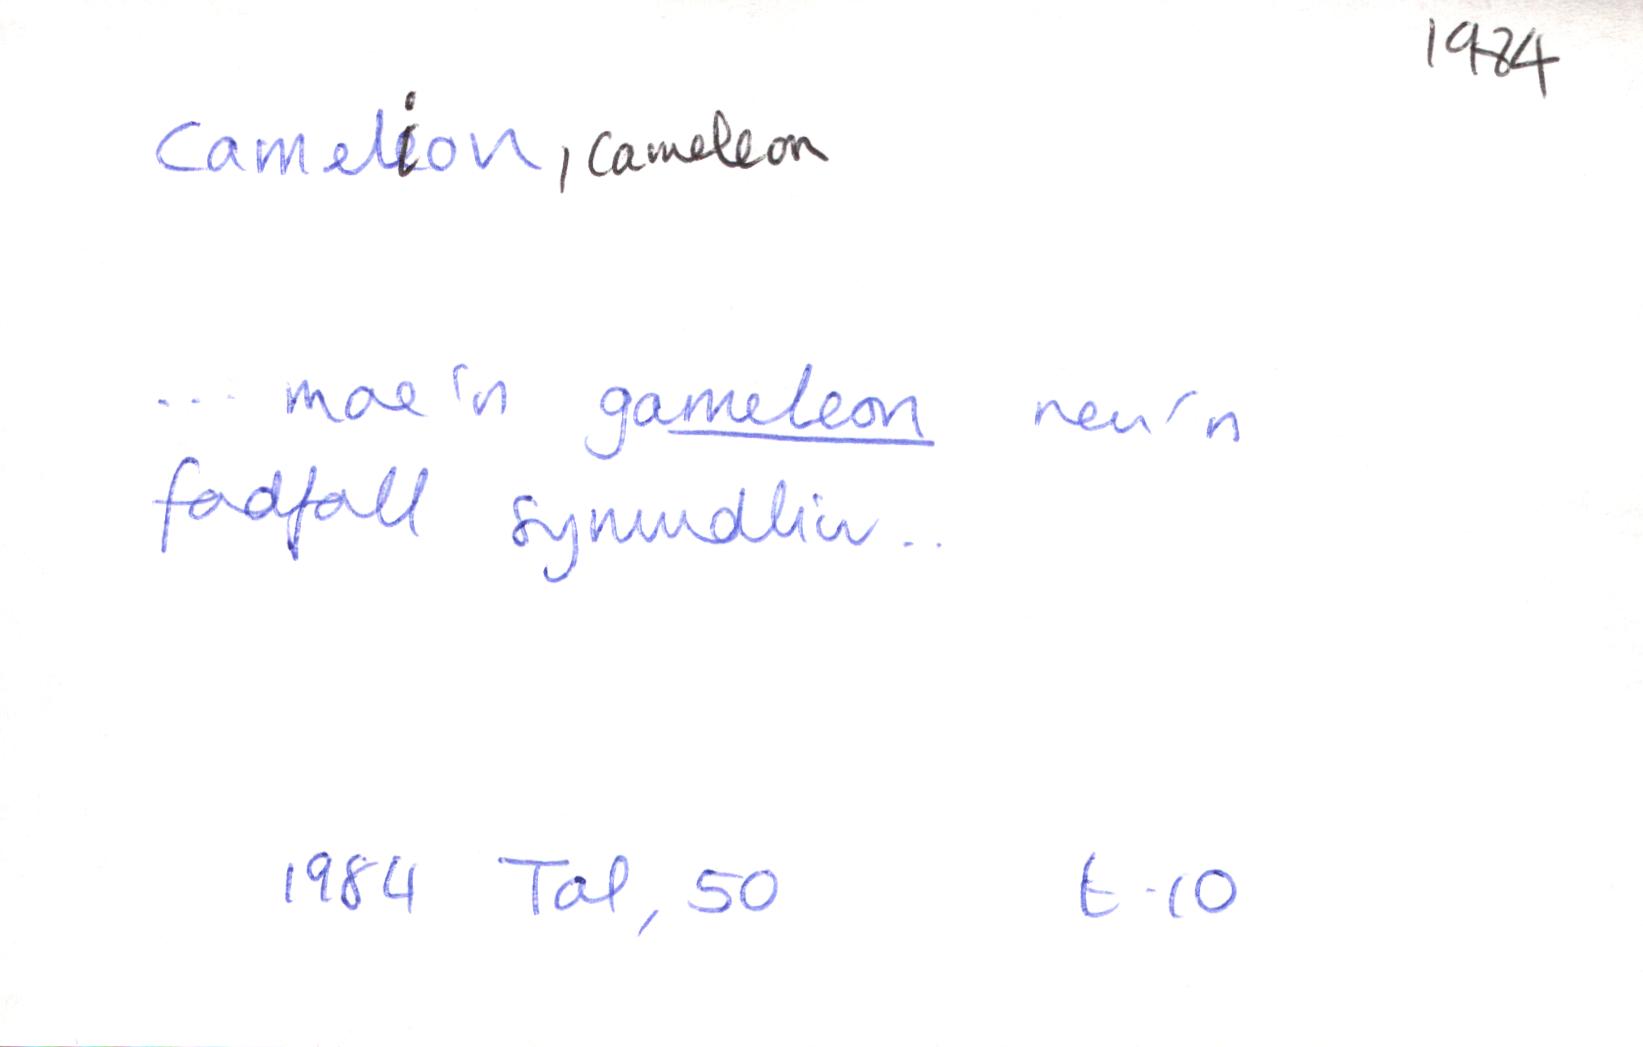 1984
camelion, cameleon
... mae'n gameleon neu'n
fadfall synmudliw..
1984 Tal, 50 t.10